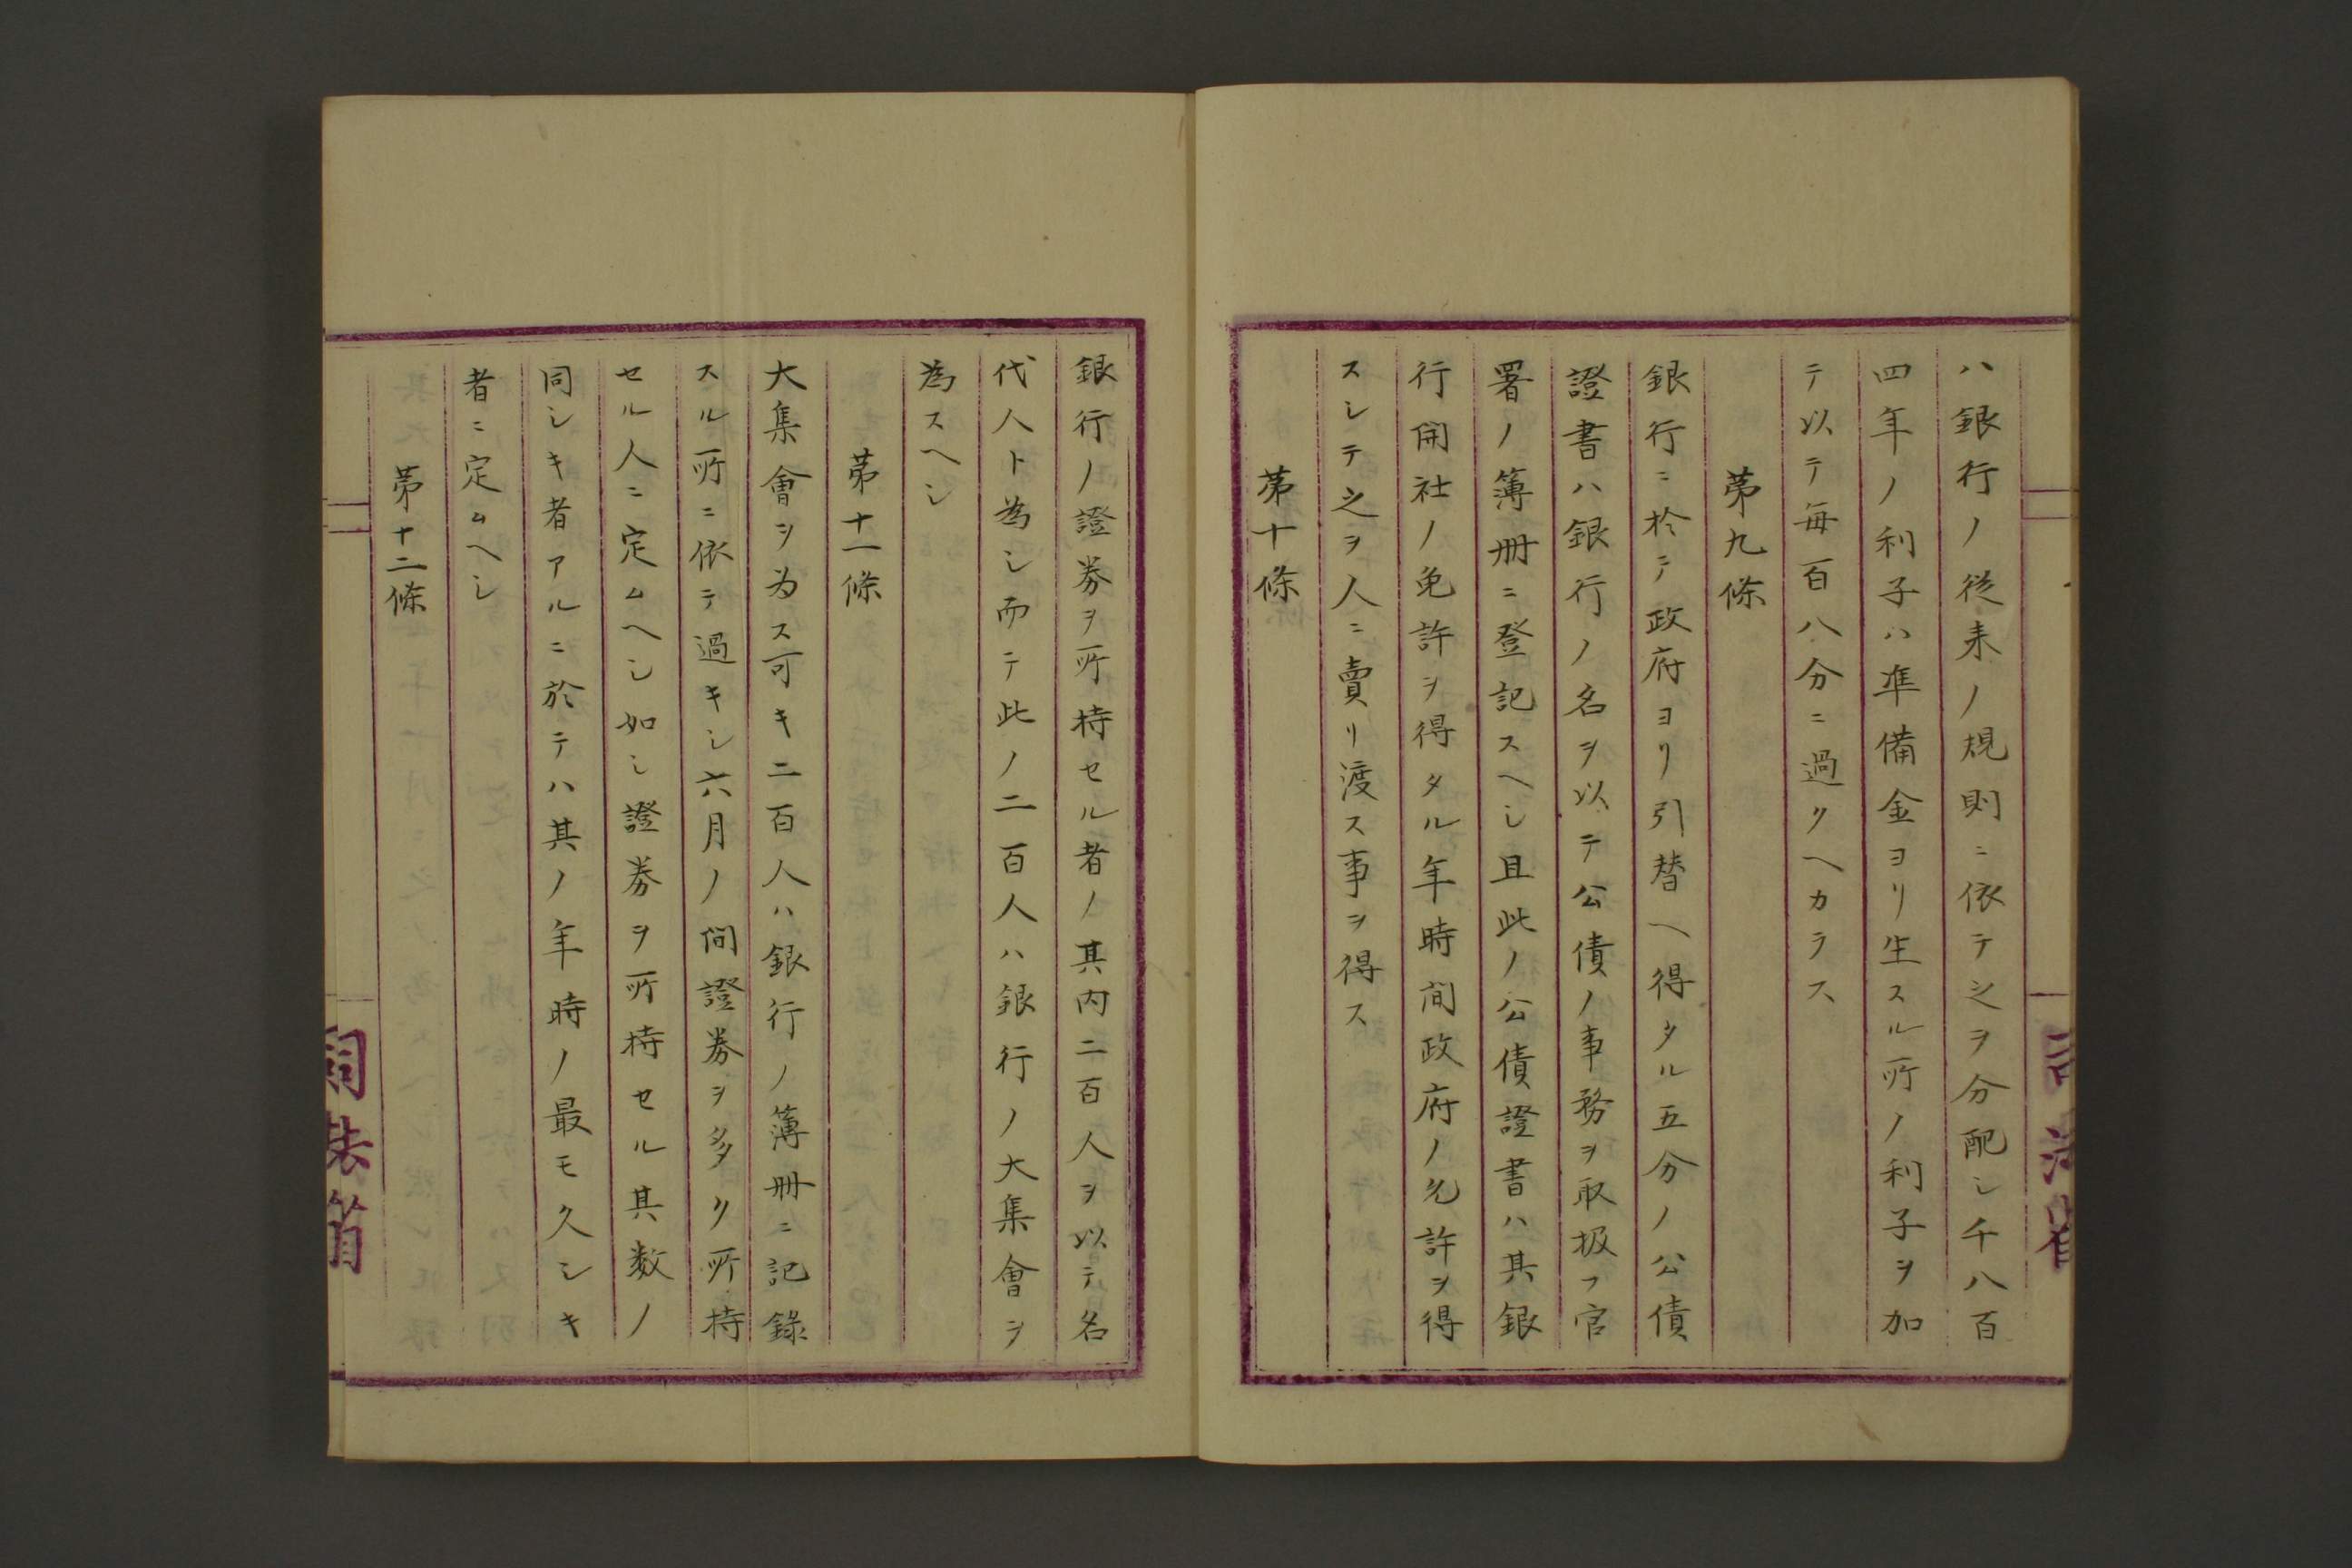 ハ銀行ノ従来ノ規則ニ依テ之ヲ分配シ千八百
四年ノ利子ハ準備金ヨリ生スル所ノ利子ヲ加
テ以テ毎百八分ニ過クヘカラス
第九條
銀行ニ於テ政府ヨリ引替ヘ得タル五分ノ公債
證書ハ銀行ノ名ヲ以テ公債ノ事務ヲ取扱フ官
署ノ簿冊ニ登記スヘシ且此ノ公債證書ハ其銀
行開社ノ免許ヲ得タル年時間政府ノ允許ヲ得
スシテ之ヲ人ニ賣リ渡ス事ヲ得ス
第十條
銀行ノ證券ヲ所持セル者ノ其内二百人ヲ以テ名
代人ト為シ而テ此ノ二百人ハ銀行ノ大集會ヲ
為スヘシ
第十一條
大集會ヲ为ス可キ二百人ハ銀行ノ簿冊ニ記錄
スル所ニ依テ過キシ六月ノ间證券ヲ多ク所持
セル人ニ定ムヘシ如シ證券ヲ所持セル其数ノ
同シキ者アルニ於テハ其ノ年時ノ最モ久シキ
者ニ定ムヘシ
第十二條
司法省